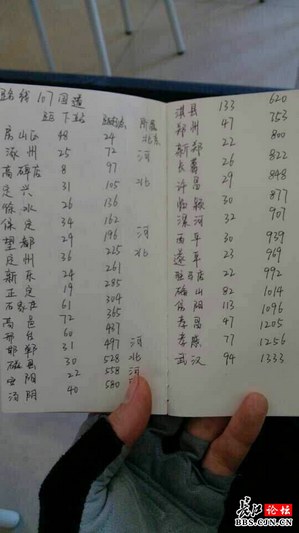 路线107国道
距下站 总距离 所属
房山区 48 24 北京
涿州 25 72 河
高碑店 8 97
定兴 31 105 北
徐水 26 136
保定 34 162
望都 29 196 河
定州 36 225 北
新乐 24 261
正定 19 285
石家庄 61 304
高邑 72 365
邢台 60 437
邯郸 31 497 河
磁县 30 528 北
安阳 22 558 河
汤阴 40 580
淇县 133 620
郑州 47 753
新郑 22 800
长葛 26 822
许昌 29 848
临颍 30 877
漯河 32 907
西平 30 939
遂平 23 969
驻马店 22 992
确山 82 1014
信阳 113 1096
孝昌 47 1205
孝感 77 1256
武汉 94 1333
长江论坛
BBS.CJN.CN